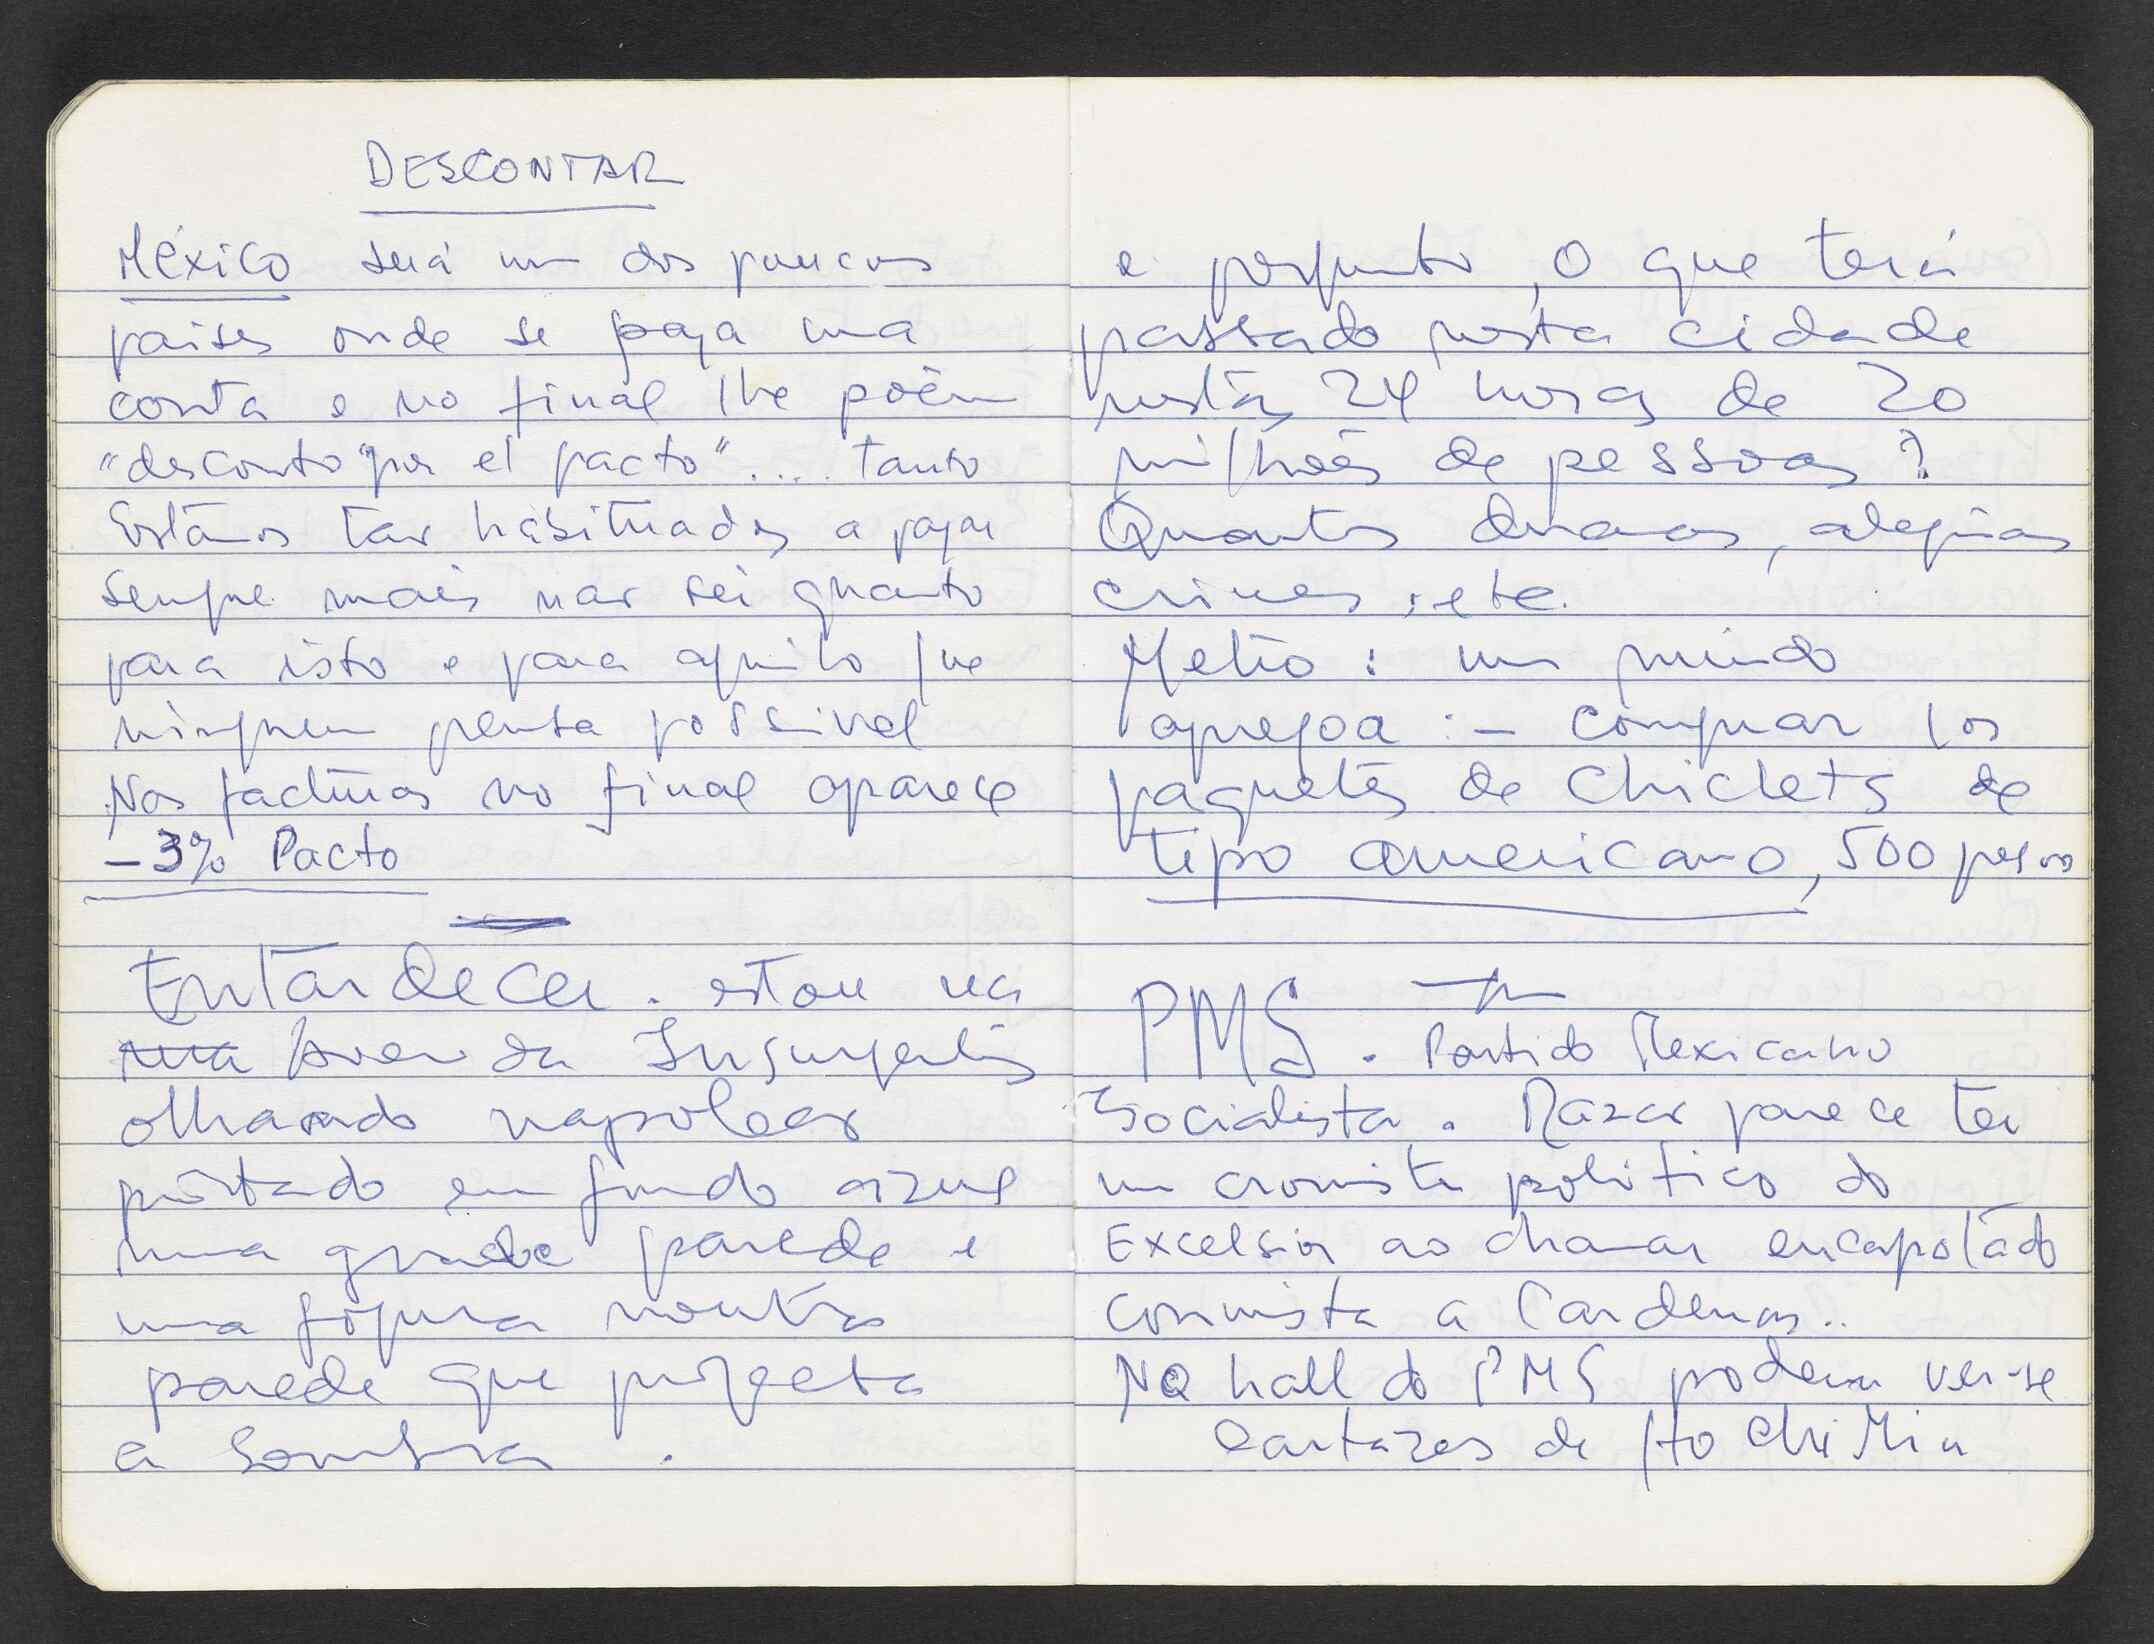 DESCONTAR
México será um dos poucos
países onde se paga uma
conta e no final lhe põem
"desconto "por el pacto".... tanto
estamos tão habituados a pagar
sempre mais não sei quanto
para isto e para aquilo que
ninguem pensa possivel
Nas facturas no final aparece
-3% Pacto
Entardecer. estou na
rua Avenida Insurgentes
olhando napoleão
pintado em fundo azul
numa grande parede e
uma figura noutra
parede que projecta
a sombra.
e pergunto, o que terá
passado nesta cidade
nestas 24 horas de 20
milhões de pessoas?
Quantos dramas, alegrias
crimes, etc.
Metro: um miudo
apregoa :- comprar los
paquetes de Chiclets de
tipo americano, 500 pesos
PMS. Partido Mexicano
Socialista. Razão parece ter
um cronista politico do
Excelsior ao chamar encapotado
comunista a Cardenas..
No hall do PMS podem ver-se
cartazes de Ho Chi Min